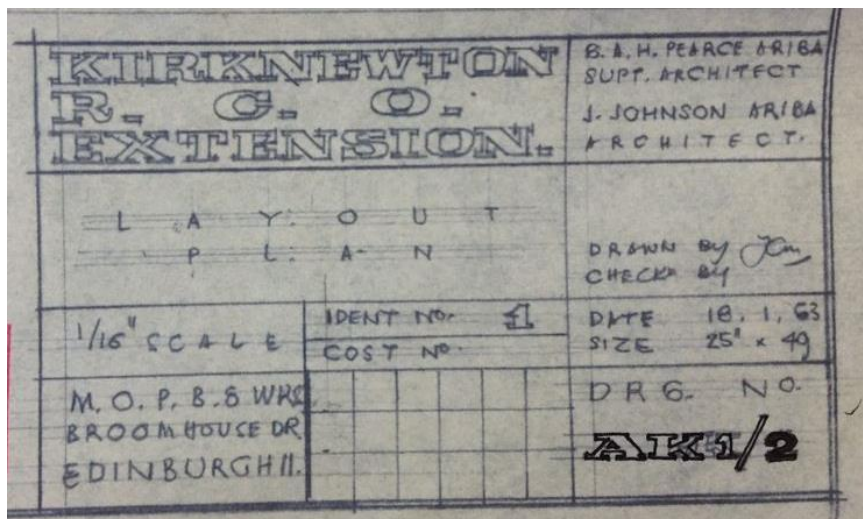 KIRKNEWTON
R. G. O.
EXTENSION.
B. A. H. PEARCE ARIBA
SUPT. ARCHITECT
J. JOHNSON ARIBA
ARCHITECT.
LAYOUT
PLAN
DRAWN BY
CHECKD BY
1/16" SCALE
IDENT NO. 1
COST NO.
DATE 18.1.63
SIZE 25" x 49
M.O.P.B. & WKS
BROOMHOUSE DR
EDINBURGH 11.
DRG. NO.
AK1/2